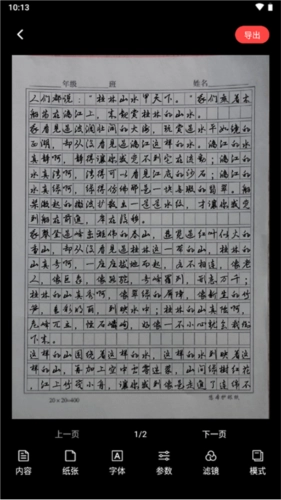 10:13
导出
年级 班 姓名
人们都说："桂林山水甲天下。"我们乘着木
船荡在漓江上，来观赏桂林的山水。
我看见过波澜壮阔的大海，玩赏过水平如镜的
西湖，却从没看见过漓江这样的水。漓江的水
真静啊，静得让你感觉不到它在流动；漓江的
水真清啊，清得可以看见江底的沙石；漓江的
水真绿啊，绿得仿佛那是一块无瑕的翡翠。船
桨激起的微波扩散出一道道水纹，才让你感觉
到船在前进，岸在后移。
我攀登过峰峦雄伟的泰山，游览过红叶似火的
香山，却从没看见过桂林这一带的山，桂林的
山真奇啊，一座座拔地而起，各不相连，像老
人，像巨象，像骆驼，奇峰罗列，形态万千；
桂林的山真秀啊，像翠绿的屏障，像新生的竹
笋，色彩明丽，倒映水中；桂林的山真险啊，
危峰兀立，怪石嶙峋，好像一不小心就会栽倒
下来。
这样的山围绕着这样的水，这样的水倒映着这
样的山，再加上空中云雾迷蒙，山间绿树红花
，江上竹筏小舟，让你感到像是走进了连绵不
20×20=400 护眼纸
上一页 1/2 下一页
内容 纸张 字体 参数 滤镜 模式